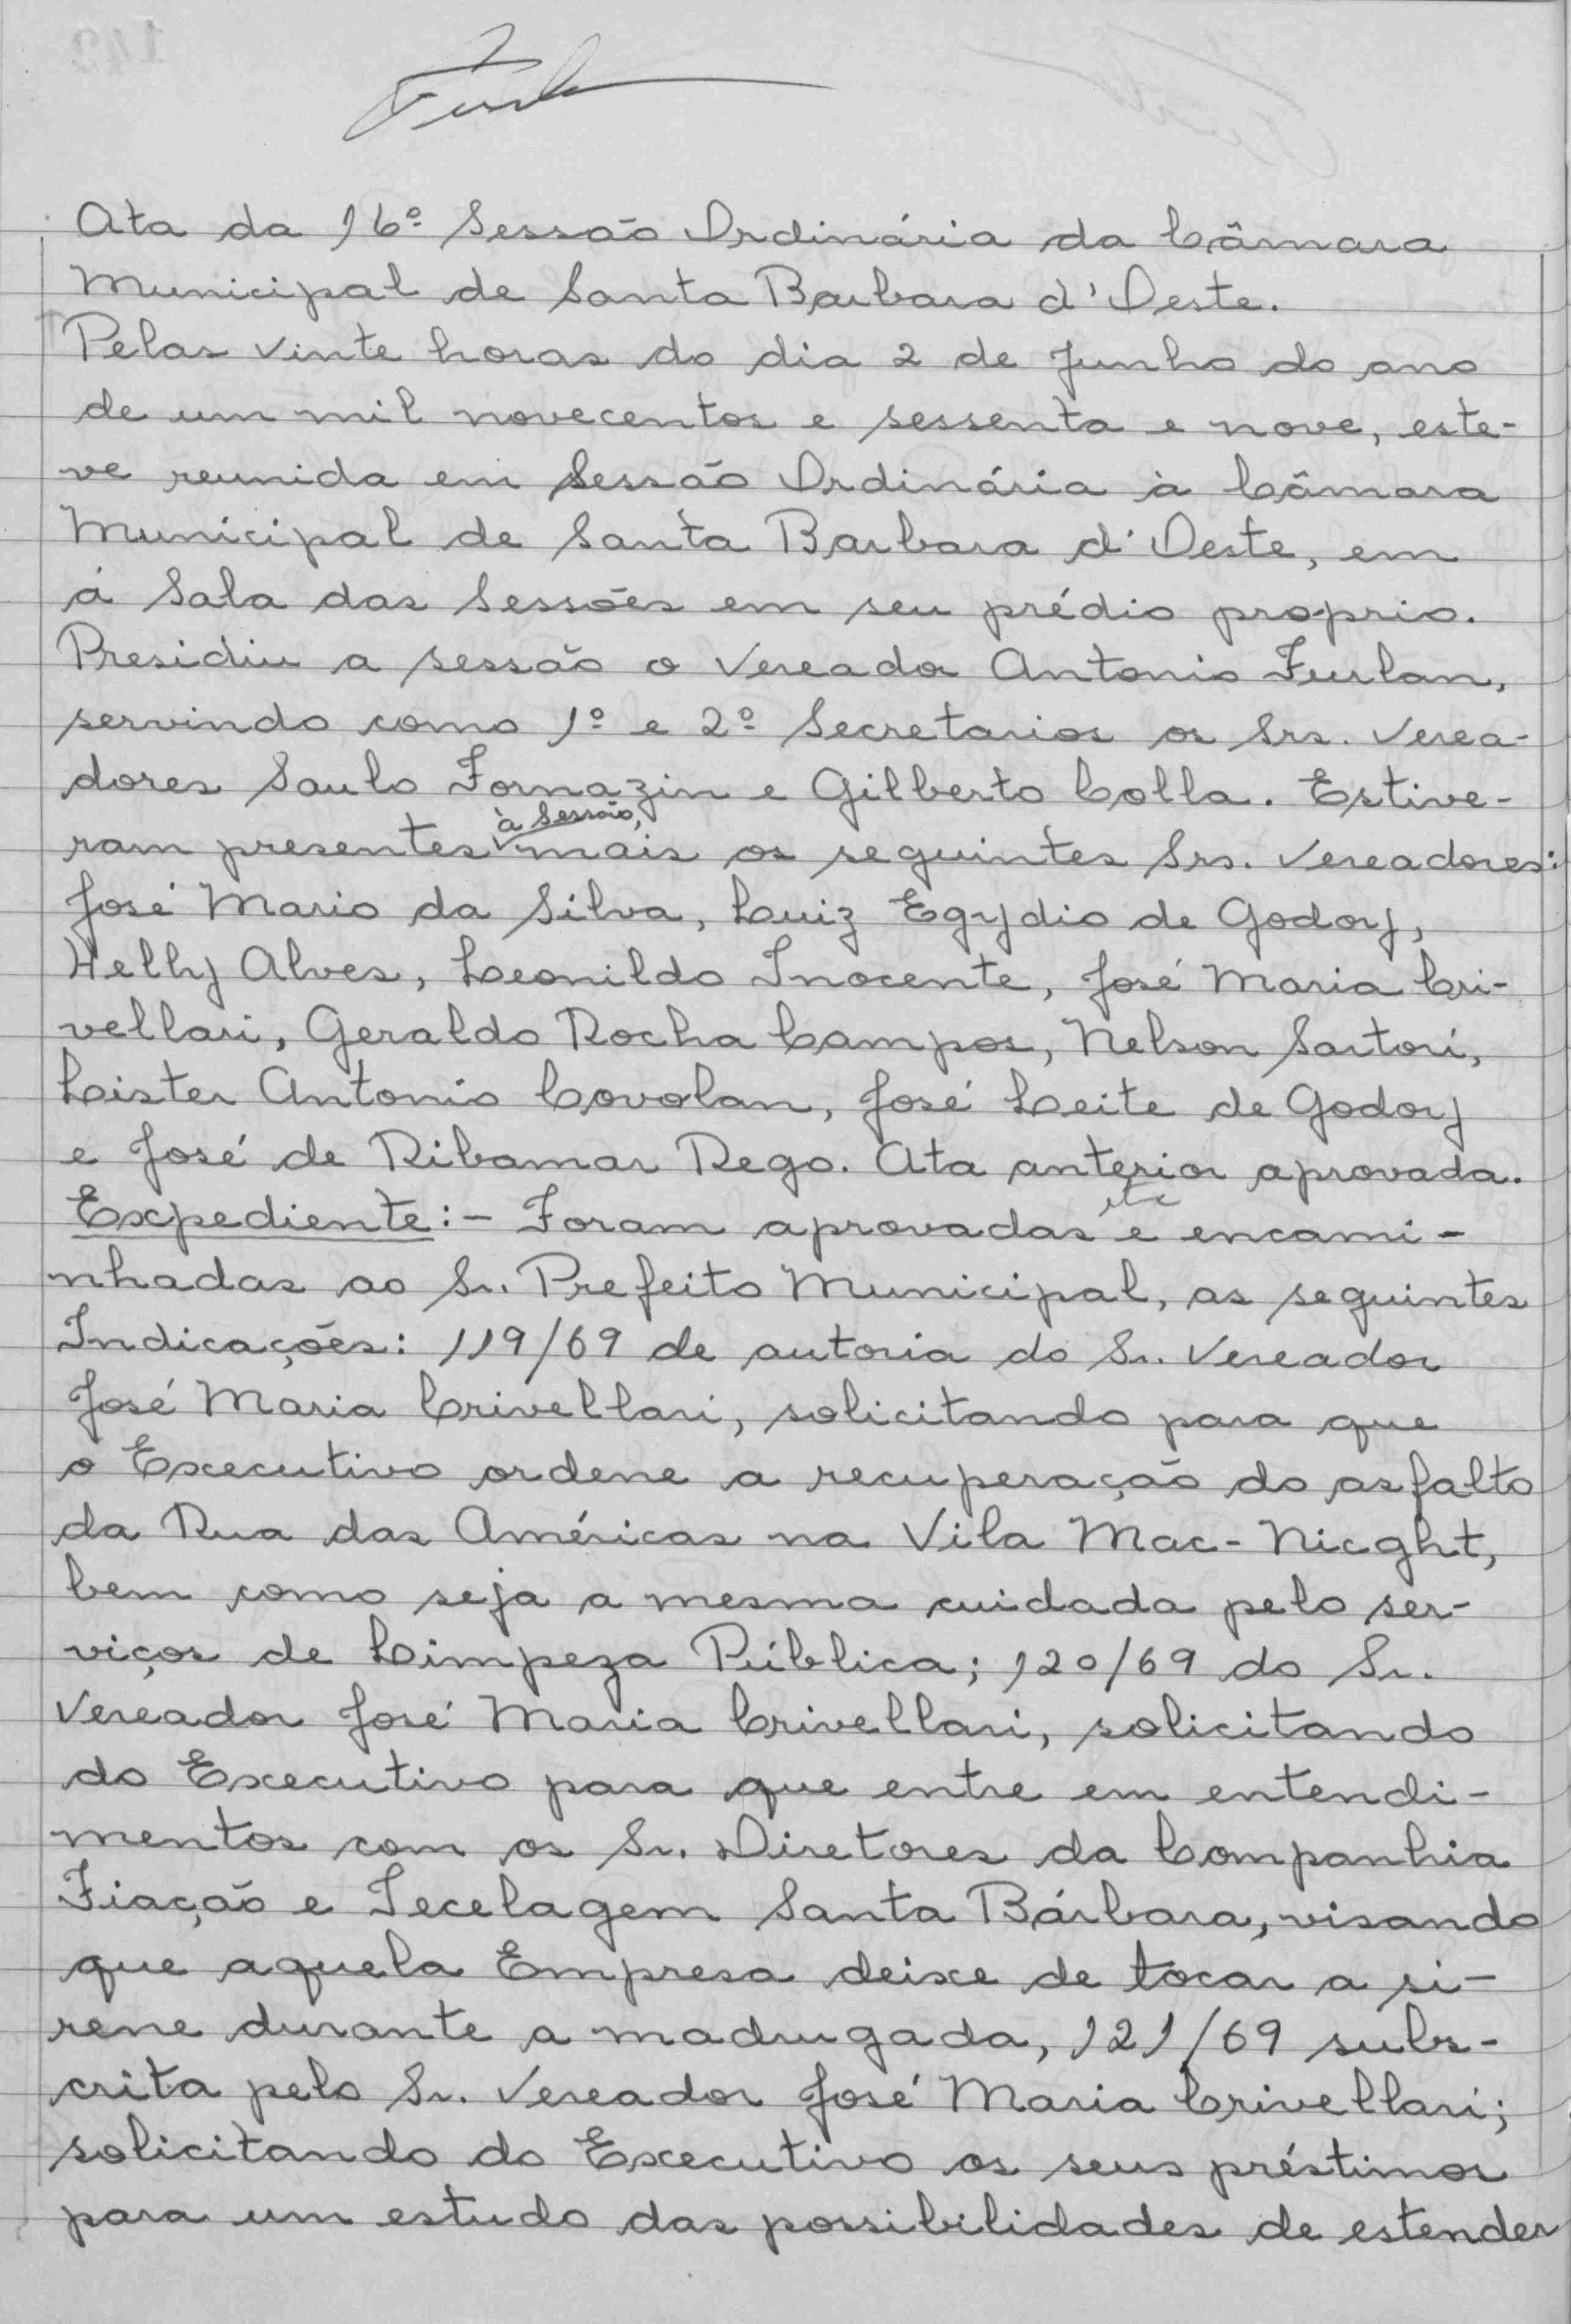 Ata da 16º Sessão Ordinária da Câmara
Municipal de Santa Barbara d'Oeste.
Pelas vinte horas do dia 2 de Junho do ano
de um mil novecentos e sessenta e nove, este-
ve reunida em Sessão Ordinária à Câmara
Municipal de Santa Barbara d'Oeste, em
á Sala das Sessões em seu prédio proprio.
Presidiu a sessão o Vereador Antonio Furlan,
servindo como 1º e 2º Secretarios os Srs. Verea-
dores Saulo Fornazin e Gilberto Colla. Estive-
à Sessão,
ram presentes mais os seguintes Srs. Vereadores:
José Mario da Silva, Luiz Egydio de Godoy,
Helly Alves, Leonildo Inocente, José Maria Cri-
vellari, Geraldo Rocha Campos, Nelson Sartori,
Lister Antonio Covolan, José Leite de Godoy
e José de Ribamar Rego. Ata anterior aprovada.
Expediente:- Foram aprovadas e encami-
nhadas ao Sr. Prefeito Municipal, as seguintes
Indicações: 119/69 de autoria do Sr. Vereador
José Maria Crivellari, solicitando para que
o Executivo ordene a recuperação do asfalto
da Rua das Américas na Vila Mac-Nicght,
bem como seja a mesma cuidada pelo ser-
viços de Limpeza Pública; 120/69 do Sr.
Vereador José Maria Crivellari, solicitando
do Executivo para que entre em entendi-
mentos com os Sr. Diretores da Companhia
Fiação e Tecelagem Santa Bárbara, visando
que aquela Empresa deixe de tocar a si-
rene durante a madrugada, 121/69 subs-
crita pelo Sr. Vereador José Maria Crivellari;
solicitando do Executivo os seus préstimos
para um estudo das possibilidades de estender